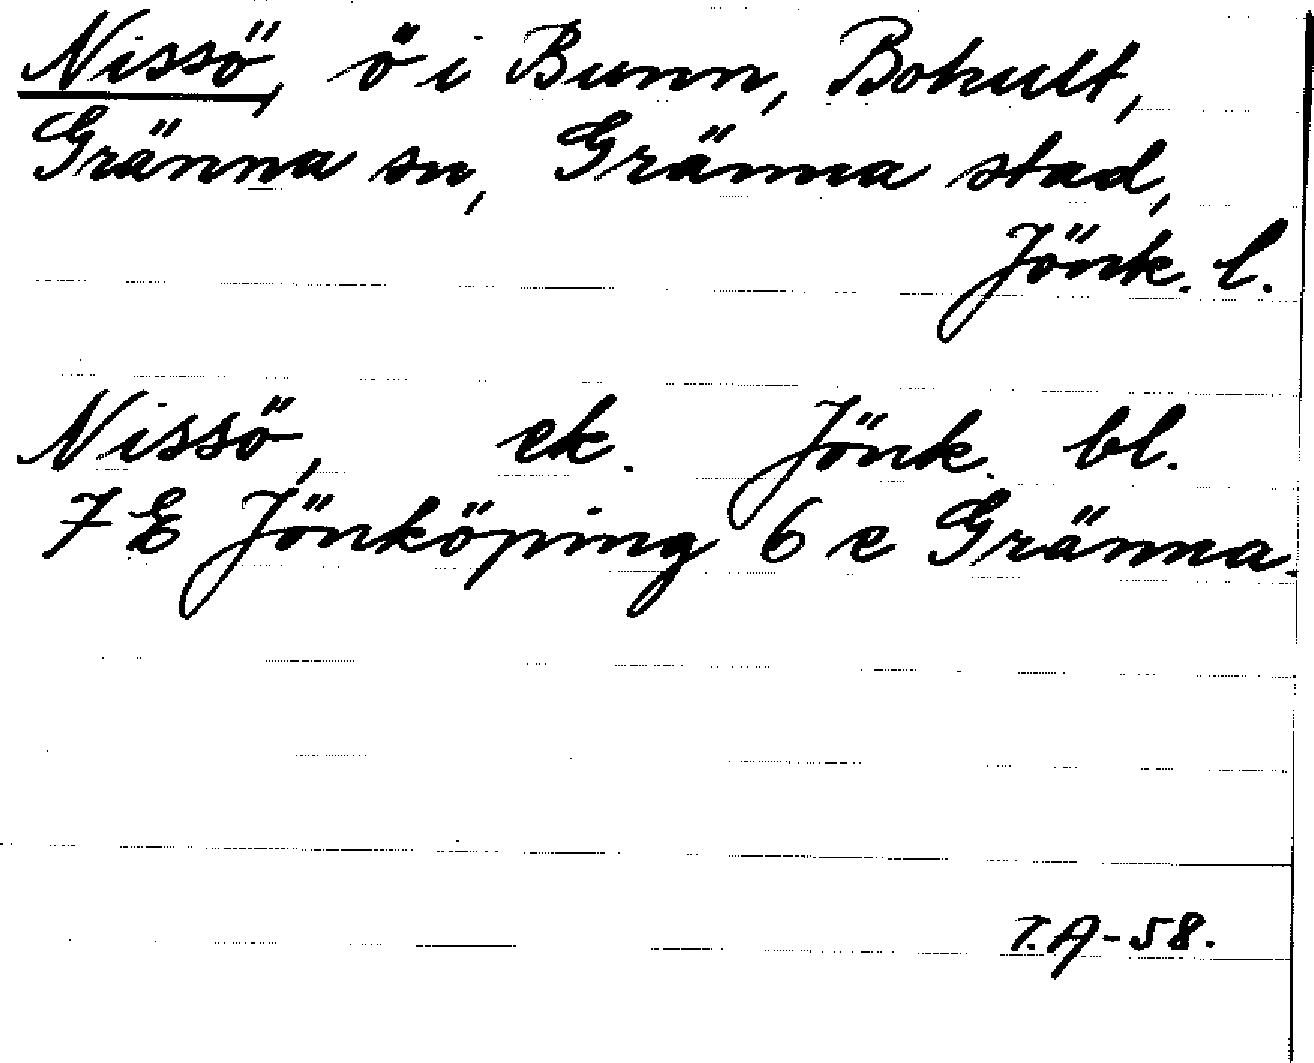 Nissö, ö i Bunn, Bokult,
Gränna sn, Gränna stad,
Jönk. l.
Nissö, ek. Jönk. bl.
7 E Jönköping 6 e Gränna.
T.A-58.